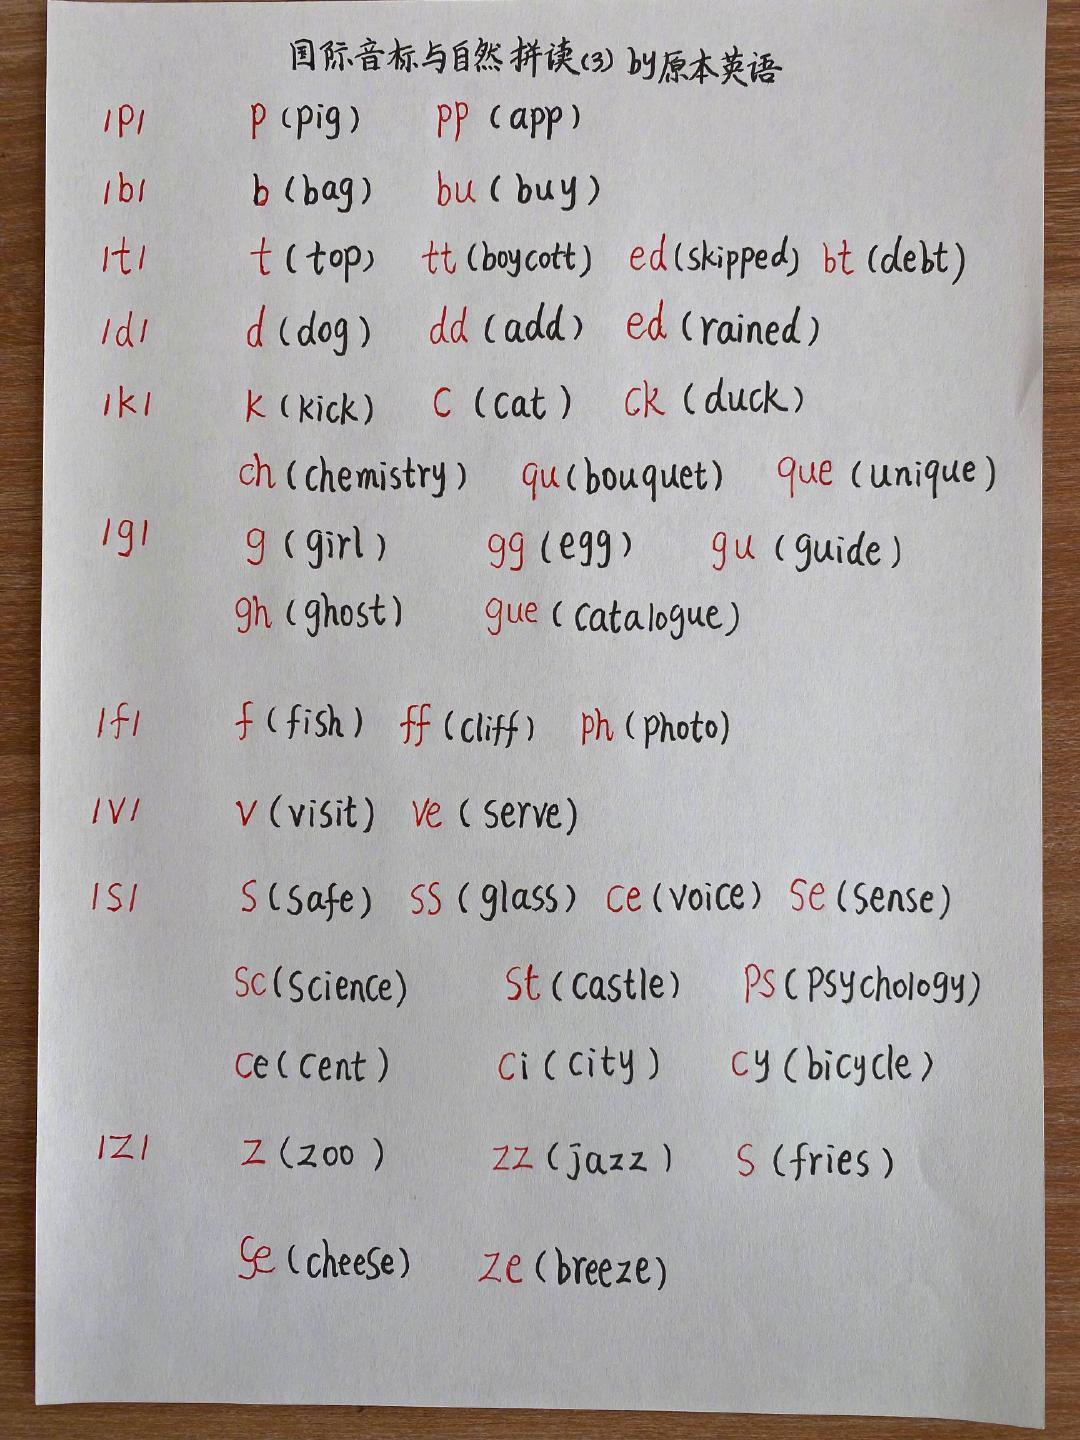 国际音标与自然拼读(3) by原本英语
/p/ p (pig) pp (app)
/b/ b (bag) bu (buy)
/t/ t (top) tt (boycott) ed (skipped) bt (debt)
/d/ d (dog) dd (add) ed (rained)
/k/ k (kick) c (cat) ck (duck)
ch (chemistry) qu (bouquet) que (unique)
/g/ g (girl) gg (egg) gu (guide)
gh (ghost) gue (catalogue)
/f/ f (fish) ff (cliff) ph (photo)
/v/ v (visit) ve (serve)
/s/ s (safe) ss (glass) ce (voice) se (sense)
sc (science) st (castle) ps (psychology)
ce (cent) ci (city) cy (bicycle)
/z/ z (zoo) zz (jazz) s (fries)
se (cheese) ze (breeze)